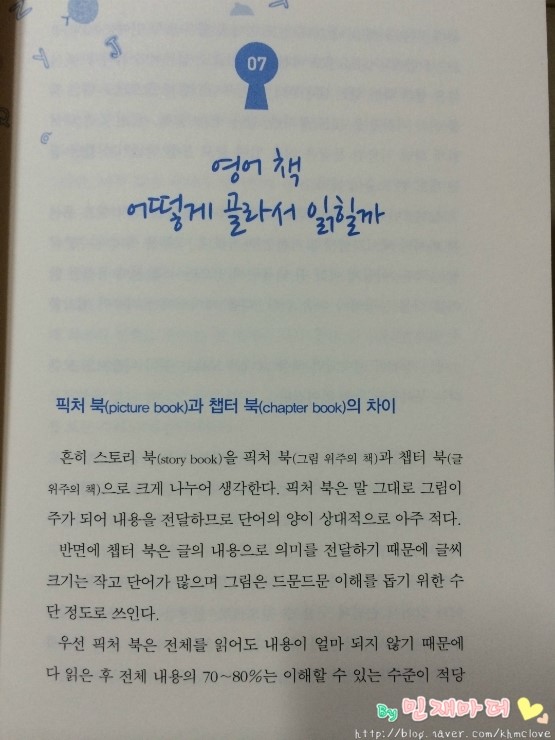 07
영어 책
어떻게 골라서 읽힐까
픽처 북(picture book)과 챕터 북(chapter book)의 차이
흔히 스토리 북(story book)을 픽처 북(그림 위주의 책)과 챕터 북(글
위주의 책)으로 크게 나누어 생각한다. 픽처 북은 말 그대로 그림이
주가 되어 내용을 전달하므로 단어의 양이 상대적으로 아주 적다.
반면에 챕터 북은 글의 내용으로 의미를 전달하기 때문에 글씨
크기는 작고 단어가 많으며 그림은 드문드문 이해를 돕기 위한 수
단 정도로 쓰인다.
우선 픽처 북은 전체를 읽어도 내용이 얼마 되지 않기 때문에
다 읽은 후 전체 내용의 70~80%는 이해할 수 있는 수준이 적당
By 민재마더
http://blog.naver.com/khmclove